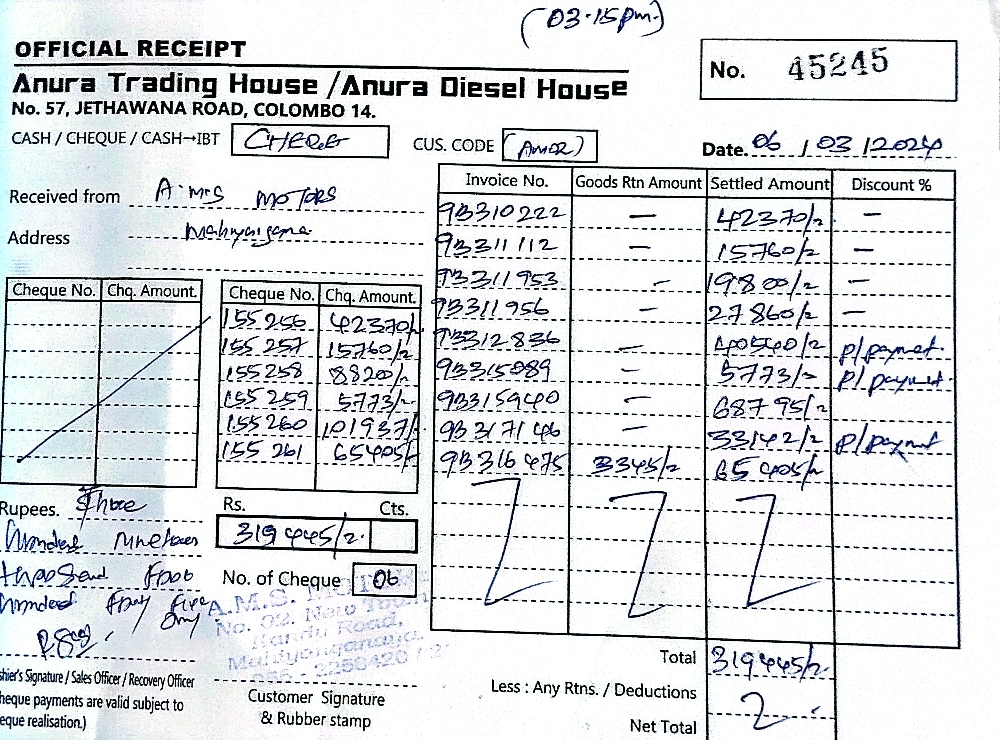 (03.15pm)
OFFICIAL RECEIPT
Anura Trading House /Anura Diesel House
No. 57, JETHAWANA ROAD, COLOMBO 14.
No. 45245
CASH / CHEQUE / CASH→IBT CHEQUE
CUS. CODE
Date. 06 / 03 / 2024
Received from A.M.S MOTORS
Address
Cheque No. Chq. Amount.
Cheque No. Chq. Amount.
155 256 42370/=
155 257 15760/=
155 258 88200/=
155 259 5773/=
155 260 101937/=
155 261 65405/=
Invoice No. Goods Rtn Amount Settled Amount Discount %
93310222 — 42370/= —
93311112 — 15760/= —
93311953 — 19800/= —
93311956 — 27860/= —
93312836 — 40540/= p/paymet.
93315089 — 5773/= p/paymet.
93315940 — 68795/=
93317146 — 33142/= p/paymet
93316475 3345/= 65405/=
Rupees. Three
Hundred Nineteen
thousand Four
Hundred Forty Five
Only
Rs. Cts.
319445/=
No. of Cheque 06
A.M.S. MOTORS
No. 92, New Town,
Kandy Road,
Mahiyanganaya.
Total 319445/=
Less : Any Rtns. / Deductions
Net Total
shier's Signature / Sales Officer / Recovery Officer
heque payments are valid subject to
eque realisation.)
Customer Signature
& Rubber stamp